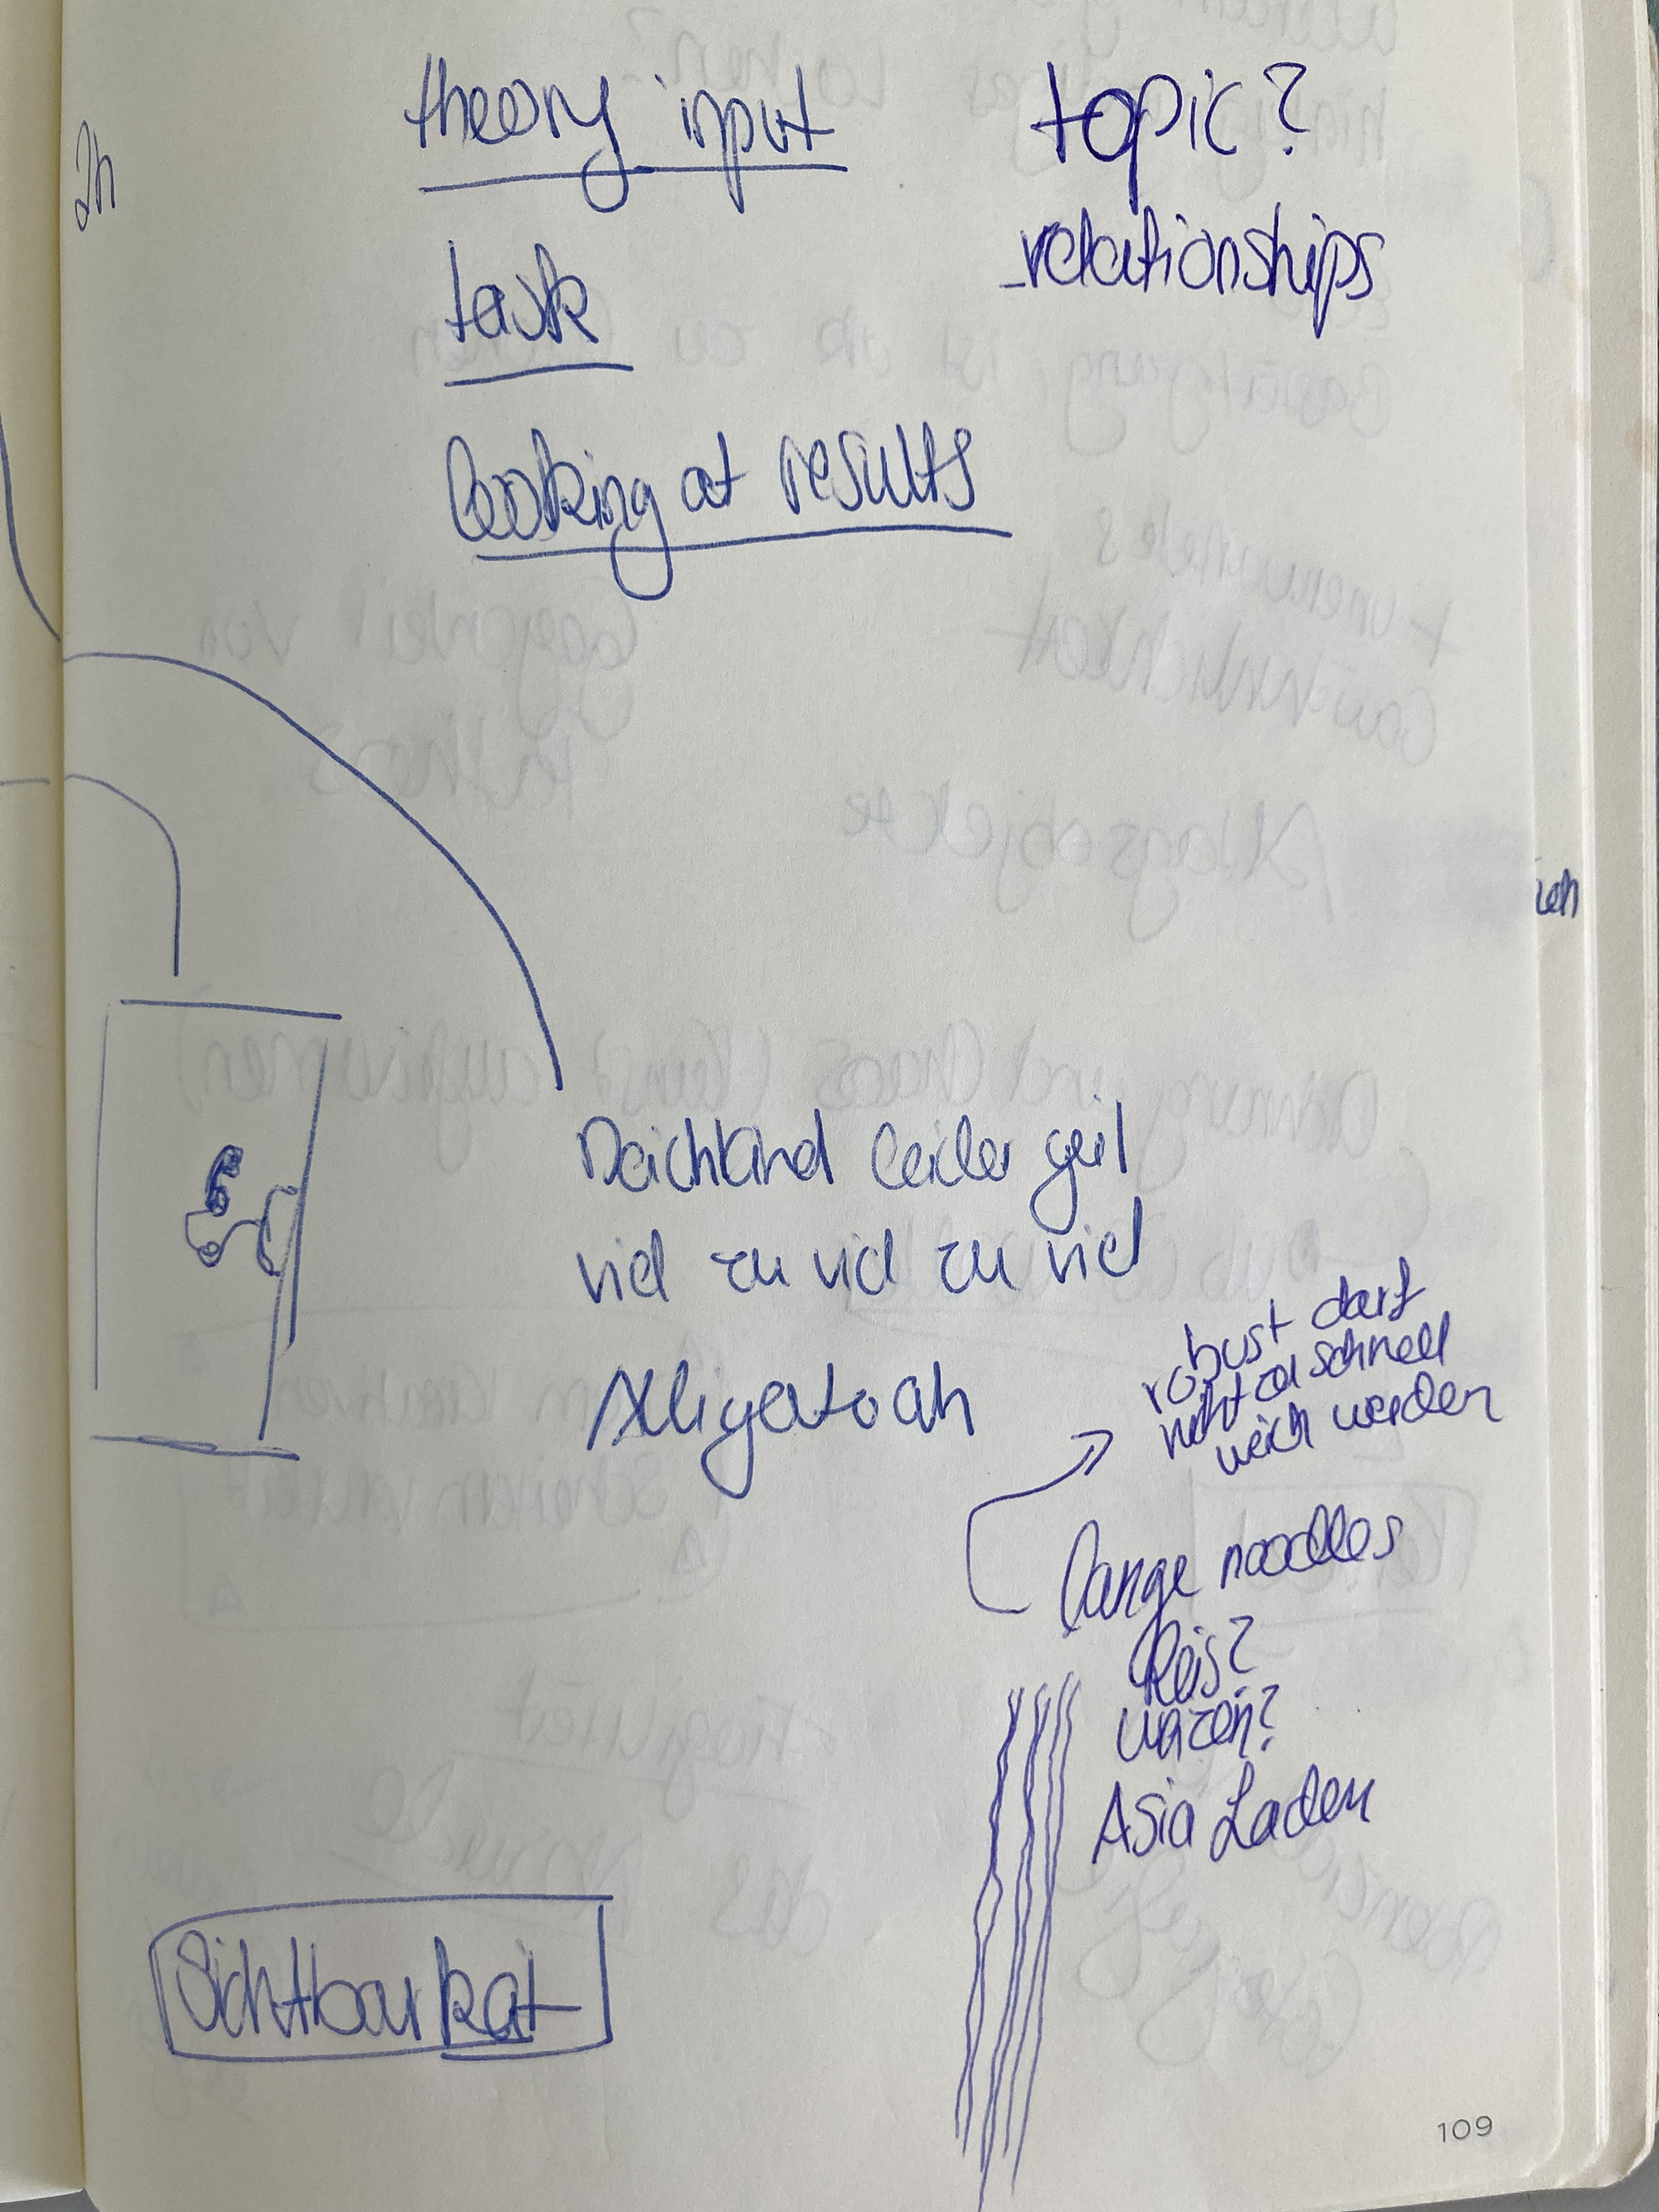 2h
theory input
task
looking at results
topic?
-relationships
Deichkind leider geil
viel zu viel zu viel
Alligatoah
robust darf
nicht zu schnell
weich werden
lange noodles
Reis?
Asia Laden
Sichtbarkeit
109